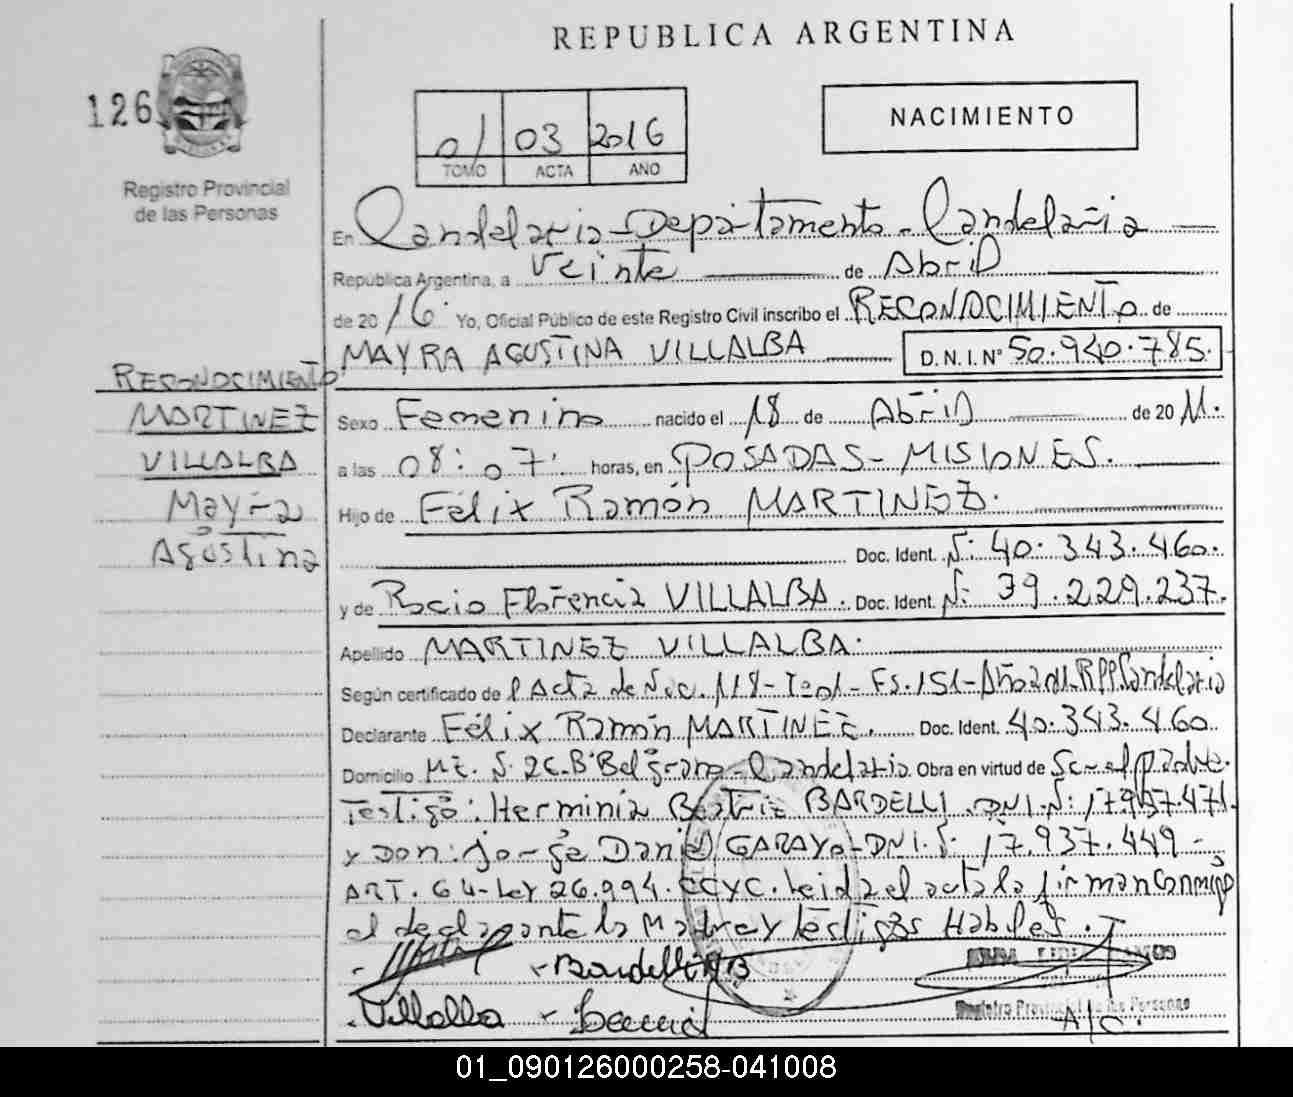 REPUBLICA ARGENTINA
126
Registro Provincial
de las Personas
01 03 2016
TOMO ACTA AÑO
NACIMIENTO
En Candelaria - Departamento - Candelaria
República Argentina, a Veinte de Abril
de 2016. Yo, Oficial Público de este Registro Civil inscribo el RECONOCIMIENTO de
MAYRA AGUSTINA VILLALBA D.N.I. N° 50.940.785.
RECONOCIMIENTO
MARTINEZ
VILLALBA
Mayra
Agustina
Sexo Femenino nacido el 18 de Abril de 2011.
a las 08:07 horas, en POSADAS - MISIONES.
Hijo de Félix Ramón MARTINEZ.
Doc. Ident. N: 40.343.460.
y de Rocio Florencia VILLALBA. Doc. Ident. N: 39.229.237.
Apellido MARTINEZ VILLALBA.
Según certificado de Acta de Nac. 118 - To 01 - Fs. 151 - Año 2011 RPP Candelaria
Declarante Félix Ramón MARTINEZ. Doc. Ident. 40.343.460.
Domicilio Mz. S. 2 C. B° Belgrano - Candelaria Obra en virtud de Ser el padre.
Testigo: Herminia Beatriz BARDELLI. DNI. N:
y Don: Jorge Daniel GARAYO - DNI. N: 17.937.449 -
ART. 64 - Ley 26.994. CCYC. Leida el acta la firman conmigo
el declarante la Madre y testigos Habiles.
Bardelli
Registro Provincial de las Personas
Villalba
A/C.
01_090126000258-041008